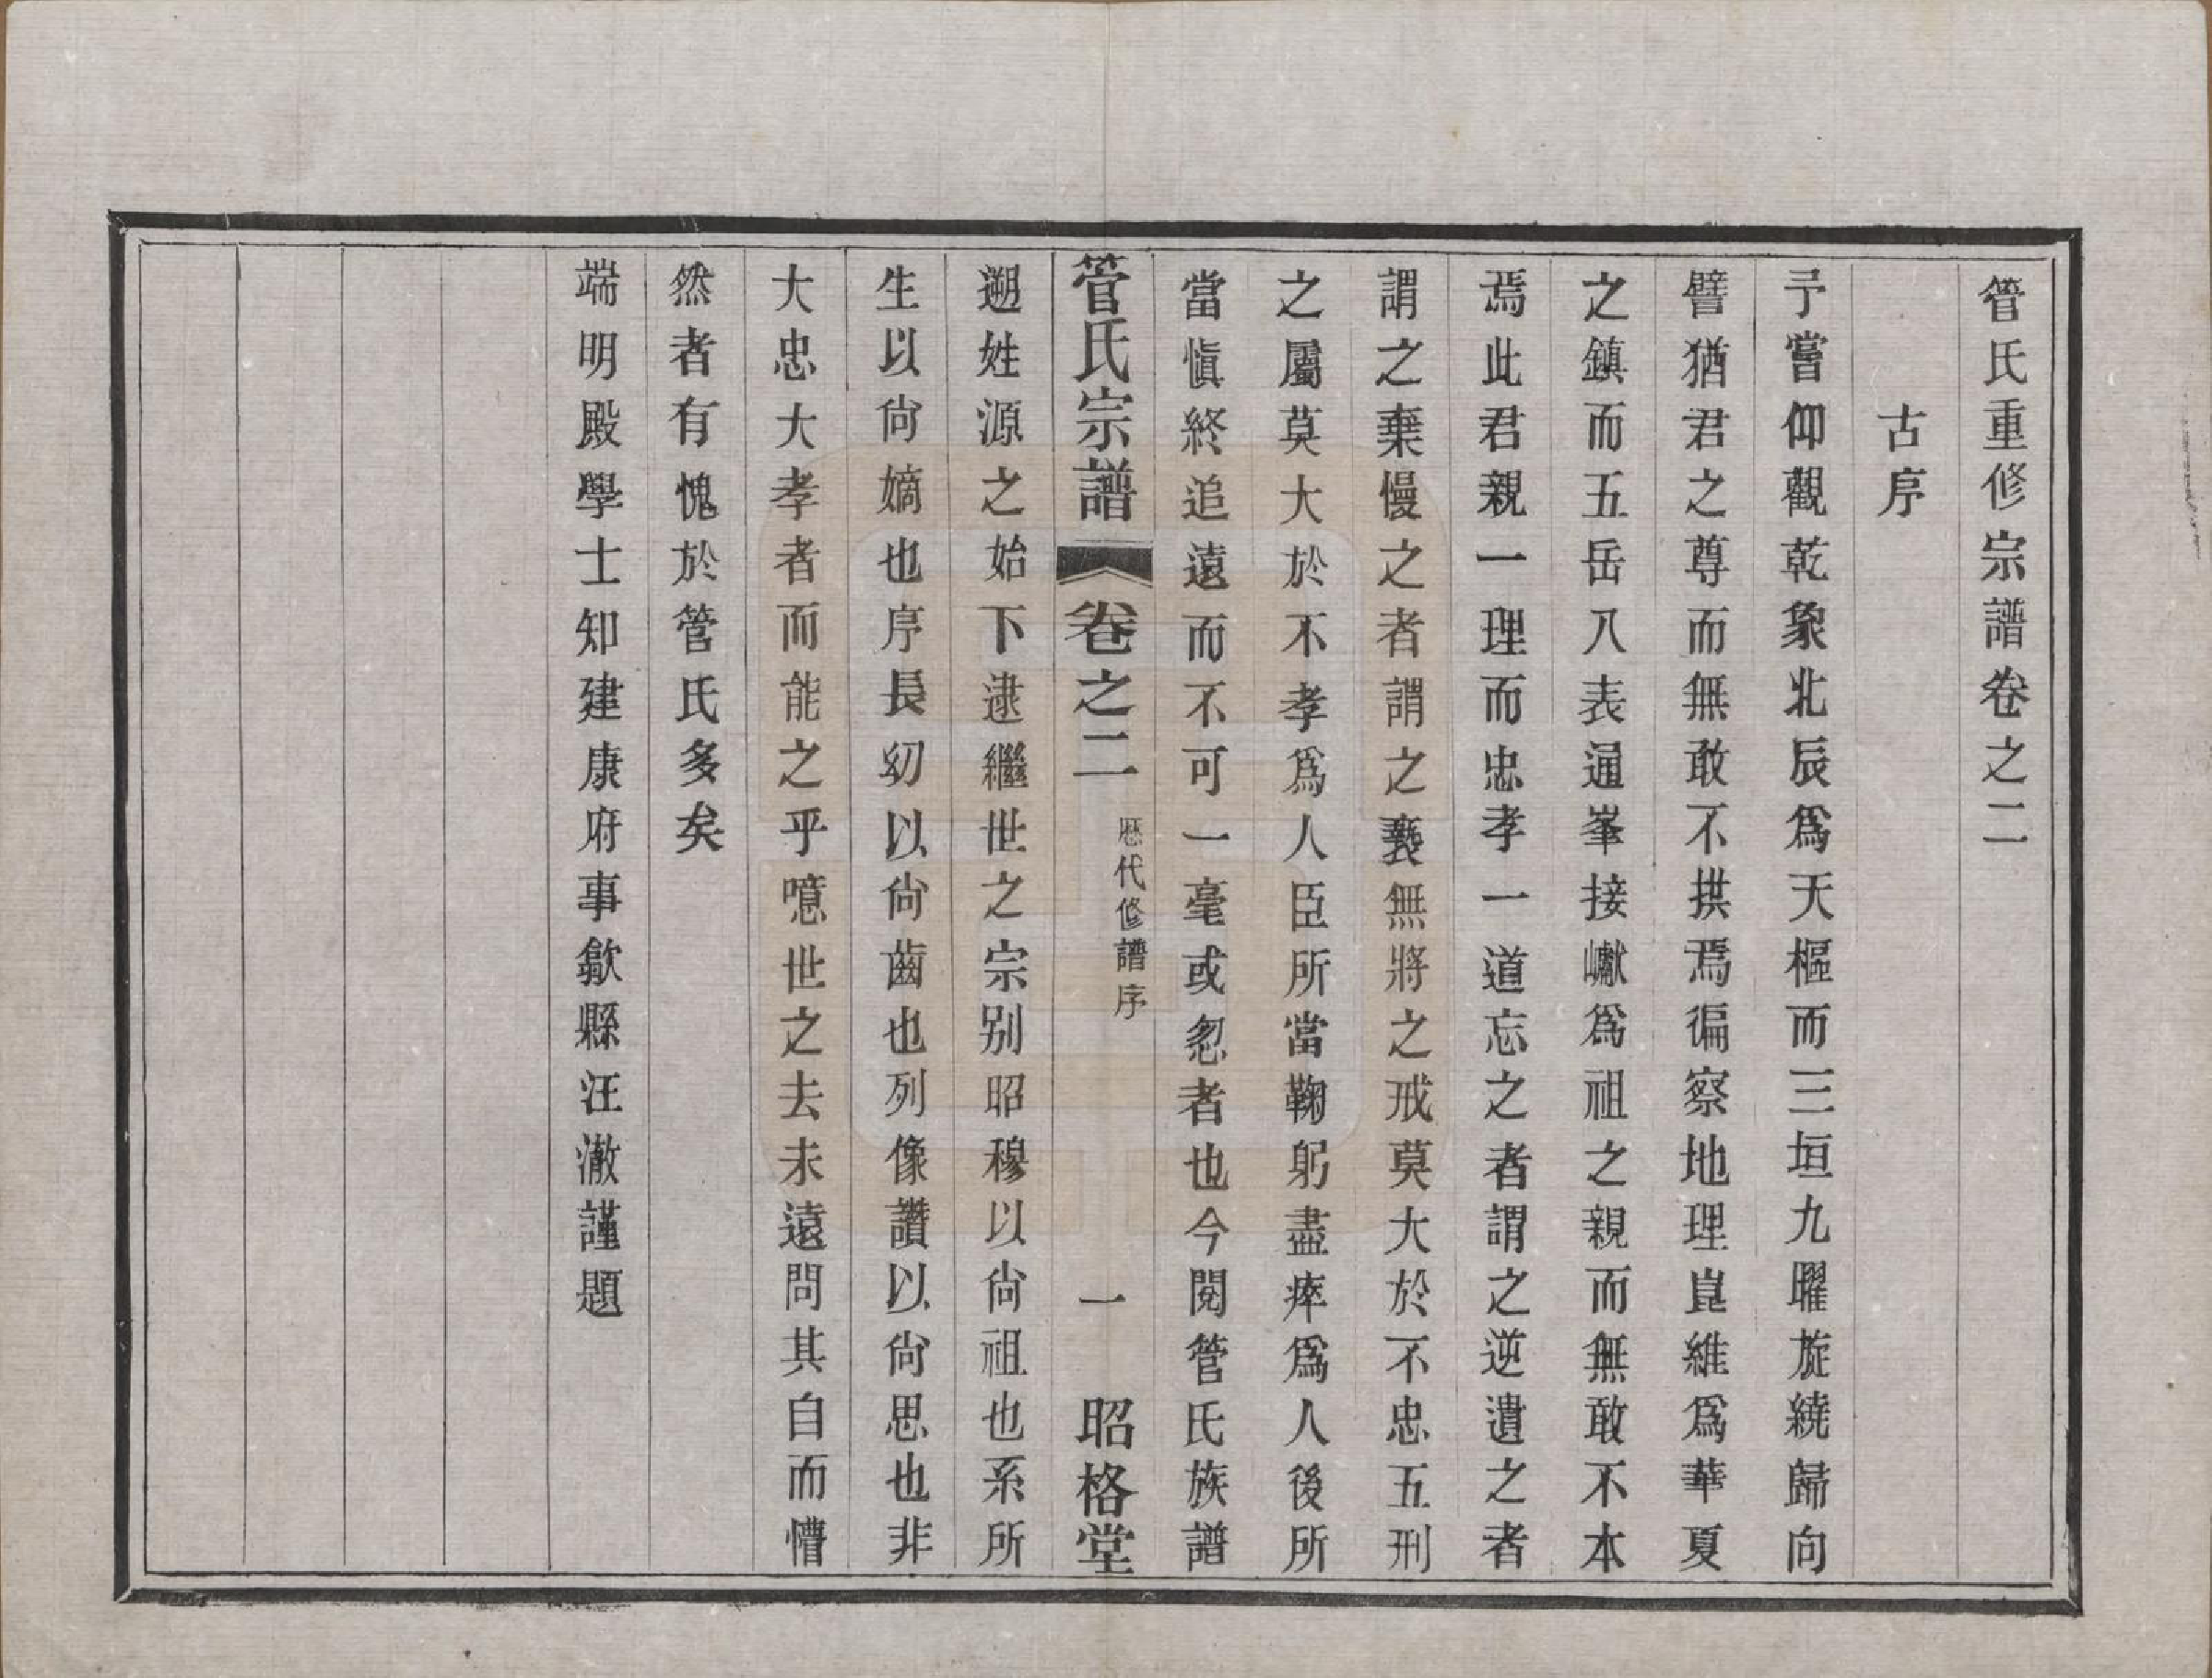 管氏重修宗譜卷之二
古序
予嘗仰觀乾象北辰爲天樞而三垣九曜旋繞歸向
譬猶君之尊而無敢不拱焉徧察地理崑維爲華夏
之鎮而五岳八表通峯接巘爲祖之親而無敢不本
焉此君親一理而忠孝一道忘之者謂之逆遺之者
謂之棄慢之者謂之褻無將之戒莫大於不忠五刑
之屬莫大於不孝爲人臣所當鞠躬盡瘁爲人後所
當愼終追遠而不可一毫或忽者也今閱管氏族譜
管氏宗譜 卷之二 歷代修譜序 一 昭格堂
遡姓源之始下逮繼世之宗别昭穆以尙祖也系所
生以尙嫡也序長幼以尙齒也列像讚以尙思也非
大忠大孝者而能之乎噫世之去未遠問其自而懵
然者有愧於管氏多矣
端明殿學士知建康府事歙縣汪澈謹題